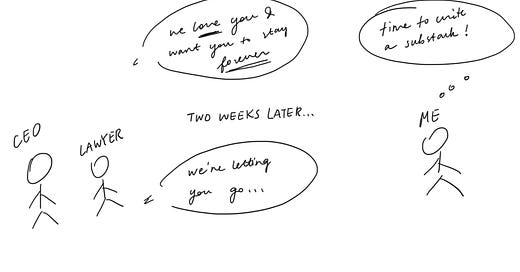 we love you &
want you to stay
forever
time to write
a substack!
TWO WEEKS LATER...
CEO
LAWYER
ME
we're letting
you go...